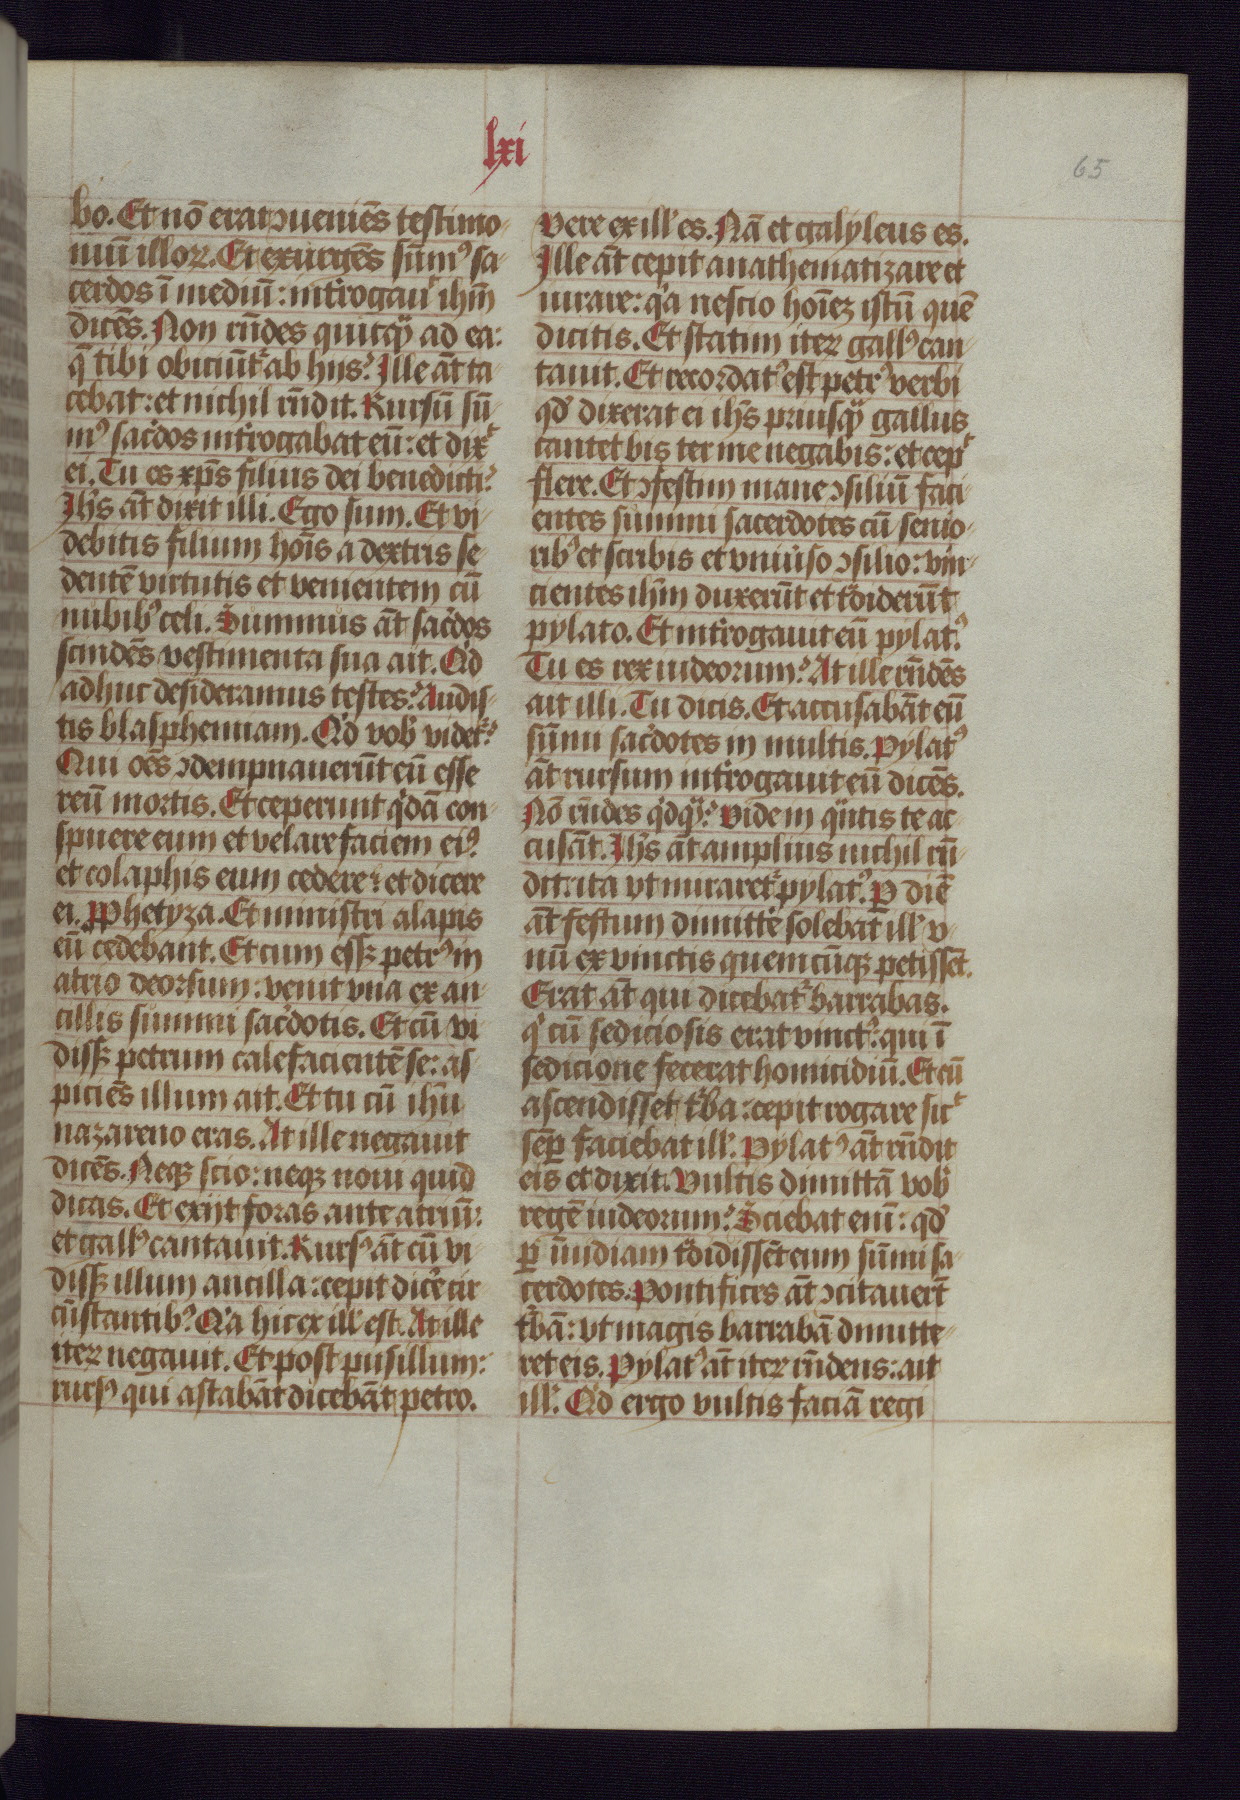 lxi
65
bo. Et nō erat ꝯueniēs testimo-
niū illoꝝ. Et exurgēs sūmꝰ sa-
cerdos ī mediū: int̾rogauͭ ihm̄
dicēs. Non rn̄des quicqͣꝫ ad ea:
q̄ tibi obiciūt᷑ ab hijs? Ille āt ta-
cebat: et nichil rn̄dit. Rursū sū-
mꝰ sac̾dos int̾rogabat eū: et dixͭ
ei. Tu es xp̄s filius dei benedicti?
Ihs̄ āt dixit illi. Ego sum. Et vi-
debitis filium hoīs a dextris se-
dentē virtutis et venientem cū
nubibꝰ celi. Summus āt sac̾dos
scindēs vestimenta sua ait. Qͥd
adhuc desideramus testes? Audis-
tis blasphemiam. Qͥd vob̾ videt᷑?
Qui oēs ꝯdempnauerūt eū esse
reū mortis. Et ceperunt qͥdā con-
spuere eum et velare faciem eiꝰ:
et colaphis eum cedere: et dicere
ei. Ꝓphetyza. Et ministri alapis
eū cedebant. Et cum essꝫ petrꝰ in
atrio deorsum: venit vna ex an-
cillis summi sac̾dotis. Et cū vi-
dissꝫ petrum calefacientē se: as-
piciēs illum ait. Et tu cū ihū
nazareno eras. At ille negauit
dicēs. Neqꝫ scio: neqꝫ noui quid
dicas. Et exijt foras ante atriū:
et gallꝰ cantauit. Rursꝰ āt cū vi-
dissꝫ illum ancilla: cepit dic̾e cir-
cūstantibꝰ. Qͥa hic ex ill̾ est. At ille
iteꝝ negauit. Et post pusillum:
rursꝰ qui astabāt dicebāt petro.
Vere ex ill̾ es. Nā et galyleus es.
Ille āt cepit anathematizare et
iurare: qͥa nescio hoīeꝫ istū quē
dicitis. Et statim iteꝝ gallꝰ can-
tauit. Et recordatꝰ est petrꝰ verbi
qd̾ dixerat ei ihs̄ priusqͣꝫ gallus
cantet bis ter me negabis: et cepͭ
flere. Et ꝯfestim mane ꝯsiliū faci-
entes summi sacerdotes cū senio-
ribꝰ et scribis et vniu̾so ꝯsilio: vin-
cientes ihm̄ duxerūt et tͣdiderūt
pylato. Et int̾rogauit eū pylatꝰ.
Tu es rex iudeorum? At ille rn̄dēs
ait illi. Tu dicis. Et accusabāt eū
sūmi sac̾dotes in multis. Pylatꝰ
āt rursum int̾rogauit eū dicēs.
Nō rn̄des qͥdqͣꝫ? Vide in qͣntis te ac-
cusāt. Ihs̄ āt amplius nichil rn̄-
dit: ita vt miraret᷑ pylatꝰ. Ꝑ diē
āt festum dimitte̾ solebāt ill̾ v-
nū ex vinctis quemcūqꝫ petissēt.
Erat āt qui dicebat᷑ barrabas.
qͥ cū sediciosis erat vinctꝰ: qui ī
sedicione fecerat homicidiū. Et cū
ascendisset tͬba: cepit rogare sicͭ
semꝑ faciebat ill̾. Pylatꝰ āt rn̄dit
eis et dixit. Vultis dimittā vob̾
regē iudeorum? Sciebat enī: qd̾
ꝑ īuidiam tͣdidissēt eum sūmi sa-
cerdotes. Pontifices āt ꝯcitauerт̄
tͬbā: vt magis barrabā dimitte-
ret eis. Pylatꝰ āt iteꝝ rn̄dens: ait
ill̾. Qͥd ergo vultis faciā regi